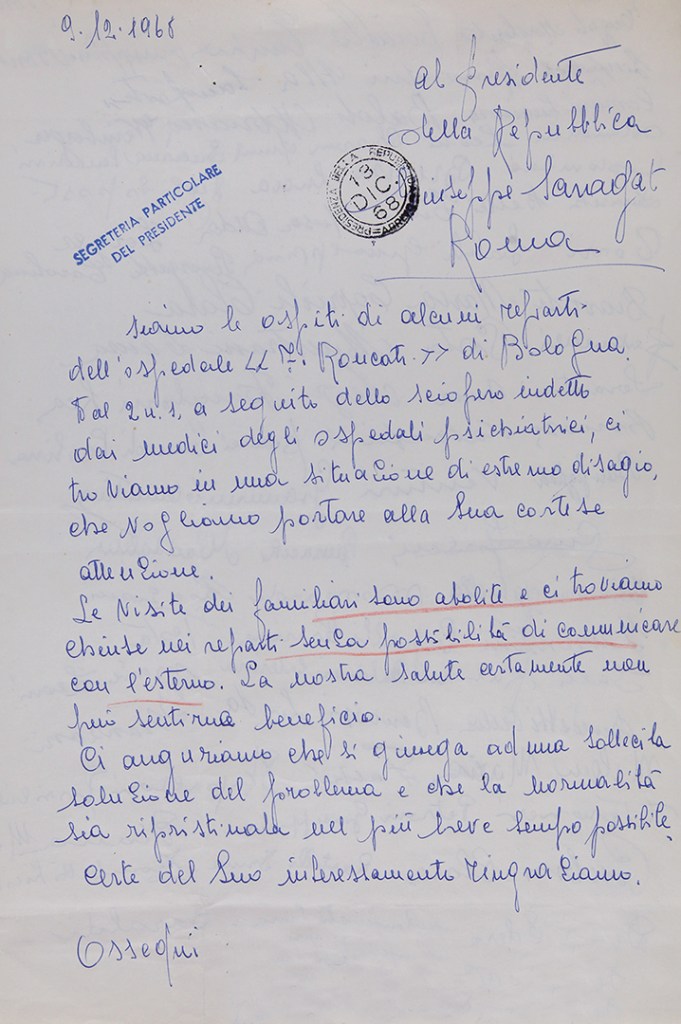 9.12.1968
Al Presidente
della Repubblica
Giuseppe Saragat
Roma
PRESIDENZA DELLA REPUBBLICA
13
DIC.
68
SEGRETERIA PARTICOLARE
DEL PRESIDENTE
Siamo le ospiti di alcuni reparti
dell'ospedale << F. Roncati >> di Bologna.
Dal 2 u.s, a seguito dello sciopero indetto
dai medici degli ospedali psichiatrici, ci
troviamo in una situazione di estremo disagio,
che vogliamo portare alla Sua cortese
attenzione.
Le visite dei familiari sono abolite e ci troviamo
chiuse nei reparti senza possibilità di comunicare
con l'esterno. La nostra salute certamente non
può sentirne beneficio.
Ci auguriamo che si giunga ad una sollecita
soluzione del problema e che la normalità
sia ripristinata nel più breve tempo possibile.
Certe del Suo interessamento ringraziamo.
Ossequi